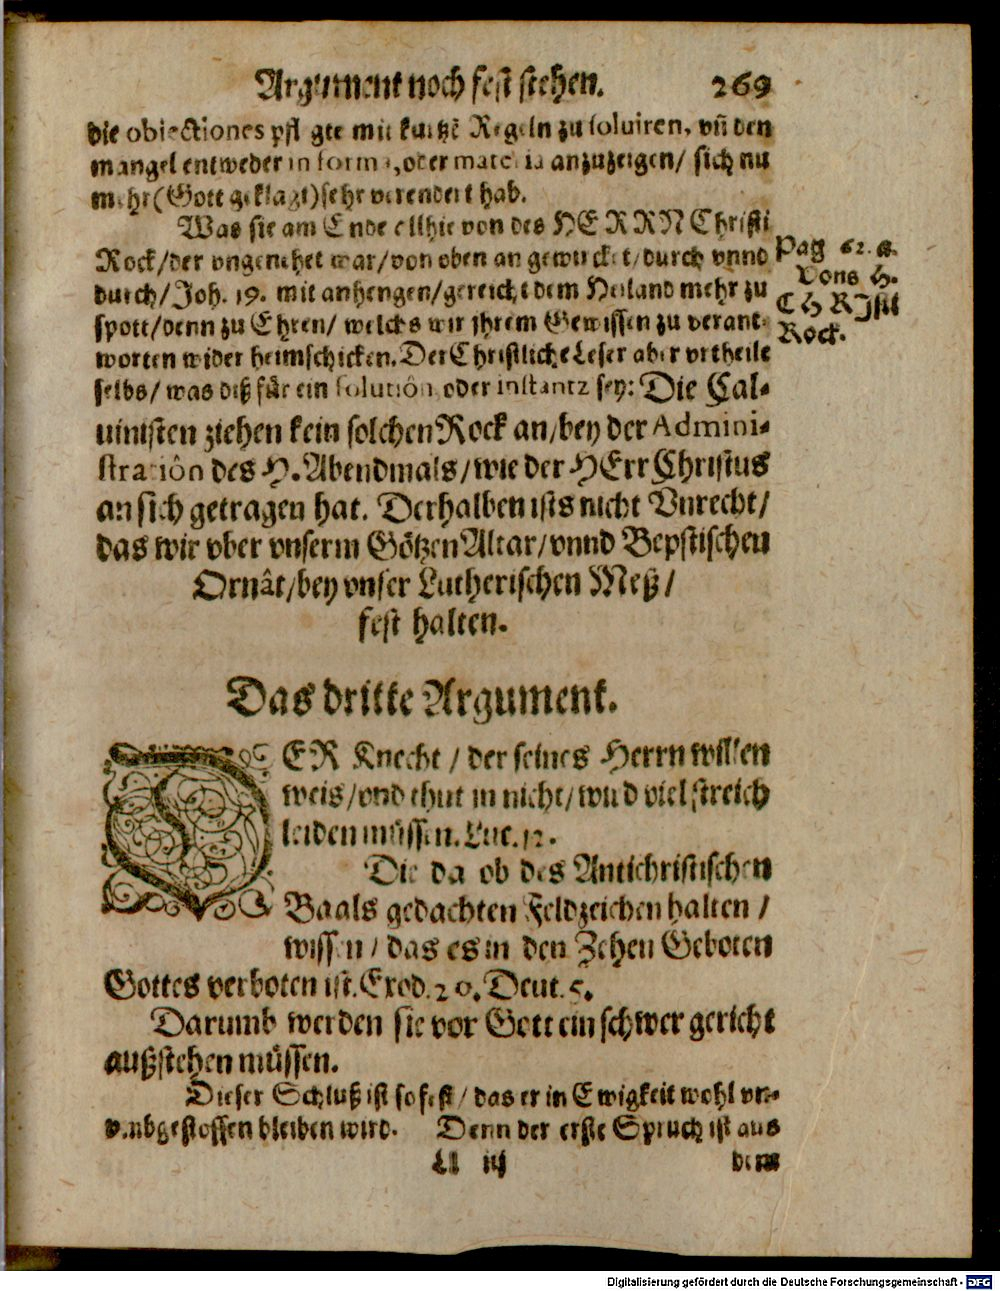 Argument noch fest stehen. 269
die obiectiones pflegte mit kurtzē Regeln zu soluiren, vñ den
mangel entweder in forma, oder materia anzuzeigen/ sich nu
mehr (Gott geklagt) sehr verendert hab.
Was sie am Ende allhie von des HERRN Christi
Rock/ der vngenehet war/ von oben an gewircket/ durch vnnd
durch/ Joh. 19. mit anhengen/ gereicht dem Heiland mehr zu
spott/ denn zu Ehren/ welchs wir jhrem Gewissen zu verant-
worten wider heimschicken. Der Christliche Leser aber vrtheile
selbs/ was diß für ein solutiôn oder instantz sey: Die Cal-
uinisten ziehen kein solchen Rock an/ bey der Admini-
stratiôn des H. Abendmals/ wie der HErr Christus
an sich getragen hat. Derhalben ists nicht Vnrecht/
das wir vber vnserm Götzen Altar/ vnnd Bepstischen
Ornât/ bey vnser Lutherischen Meß/
fest halten.
Pag 62. a.
Vons H.
CHRJsti
Rock.
Das dritte Argument.
DER Knecht/ der seines Herrn willen
weis/ vnd thut jn nicht/ wird viel streich
leiden müssen. Luc. 12.
Die da ob des Antichristischen
Baals gedachten Feldzeichen halten/
wissen/ das es in den Zehen Geboten
Gottes verboten ist. Exod. 20. Deut. 5.
Darumb werden sie vor Gott ein schwer gericht
außstehen müssen.
Dieser Schluß ist so fest/ das er in Ewigkeit wohl vn-
vmbgestossen bleiben wird. Denn der erste Spruch ist aus
Ll iij dem
Digitalisierung gefördert durch die Deutsche Forschungsgemeinschaft - DFG